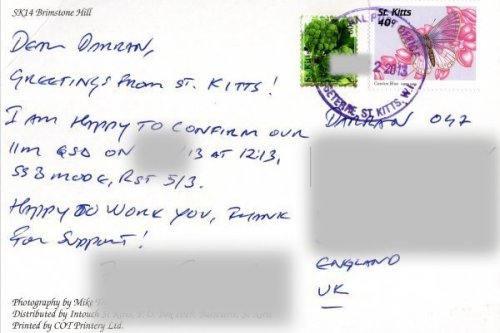 SK14 Brimstone Hill
DEAR DARRAN,
GREETINGS FROM ST. KITTS!
I AM HAPPY TO CONFIRM OUR
11m QSO ON 13 AT 12:13,
SSB MODE, RST 5/3.
HAPPY TO WORK YOU, THANK
FOR SUPPORT!
Photography by Mike
Distributed by Intouch St Kitts, P.O. Box
Printed by COT Printery Ltd.
St. Kitts
40¢
2 2013
BASSETERRE, ST. KITTS, W.I.
DARRAN 047
ENGLAND
UK